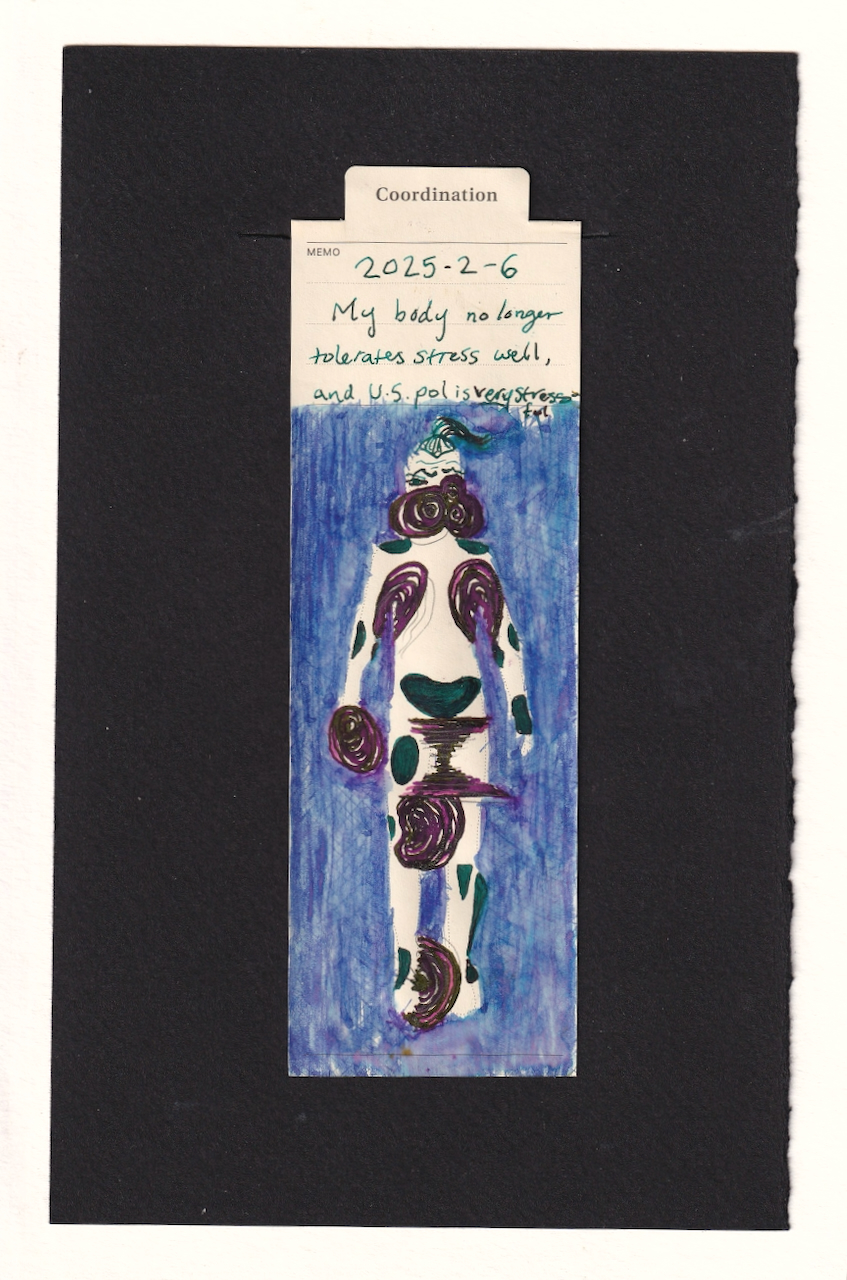 Coordination
MEMO
2025-2-6
My body no longer
tolerates stress well,
and U.S. pol is very stress-
ful